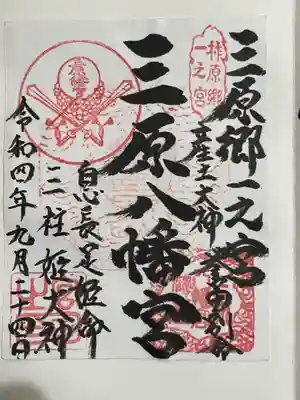 三原郷一之宮
産土大神
誉田別命
三原八幡宮
息長足姫命
三柱姫大神
令和四年九月二十四日
拝原郷
一之宮